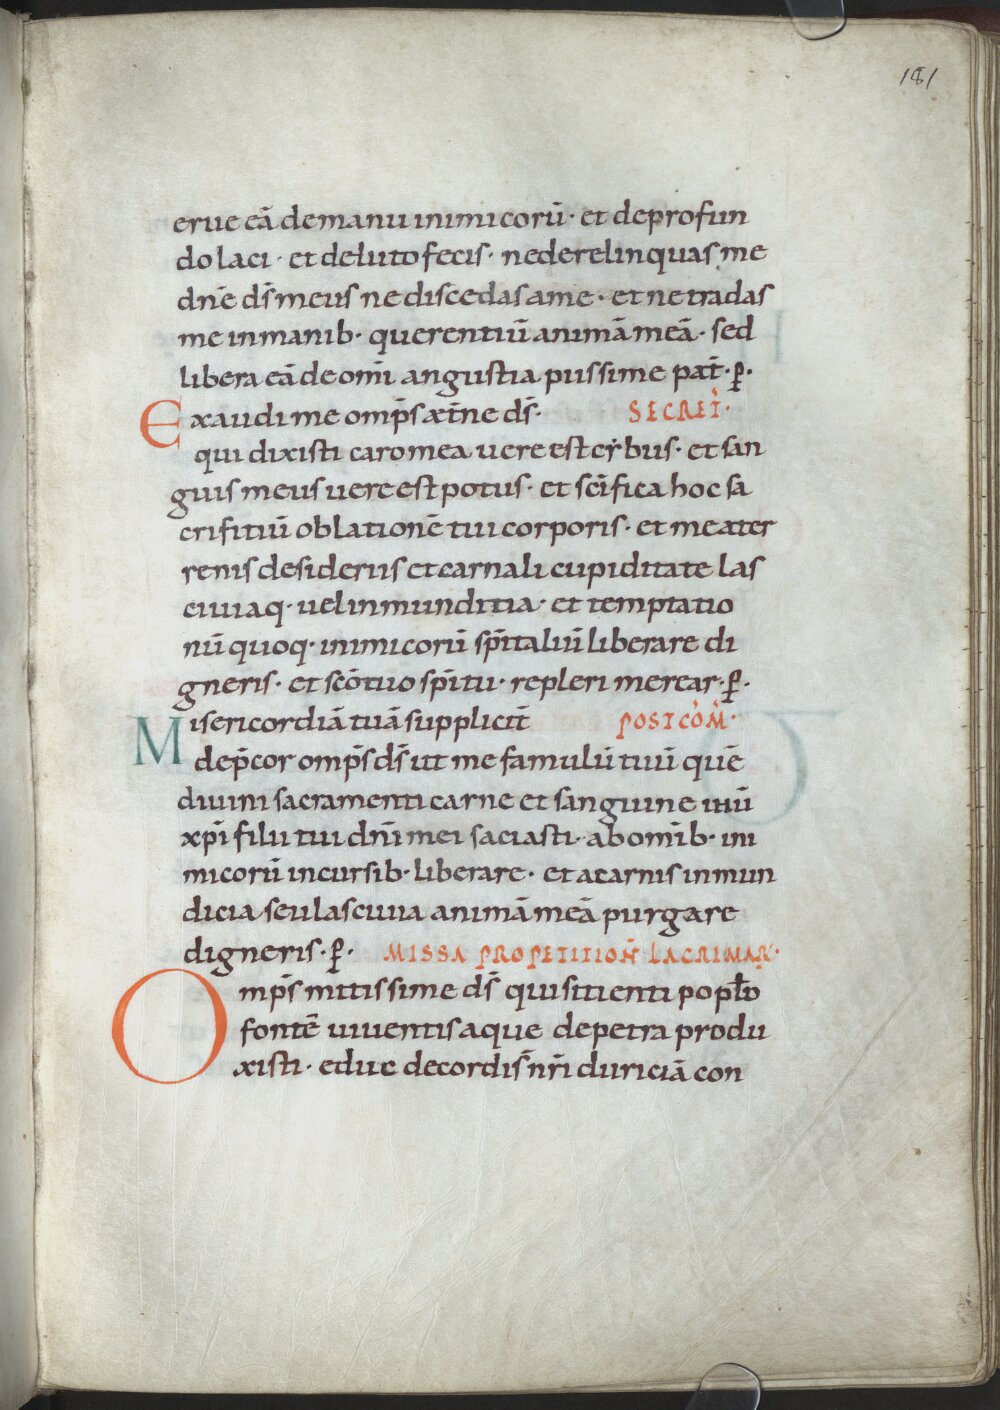 181
erue eā demanu inimicorū· et deprofun
do laci· et deluto fecis· nederelinquas me
dn̄e ds̄ meus ne discedas ame· et ne tradas
me inmanib· querentiū animā meā· sed
libera eā de om̄i angustia piissime pat̄·ꝑ·
Exaudi me omp̄s æt̄ne ds̄· SECRET̄·
qui dixisti caro mea uere est cẏbus· et san
guis meus uere est potus· et sc̄ifica hoc sa
crifitiū oblationē tui corporis· et me a ter
renis desideriis et carnali cupiditate las
ciuiaq· uel inmunditia· et temptatio
nū quoq· inimicorū sp̄italiū liberare di
gneris· et sc̄o tuo sp̄itu· repleri merear·ꝑ·
Misericordiā tuā supplicit̄ POSTCOM̄·
dep̄cor omp̄s ds̄ ut me famulū tuū quē
diuini sacramenti carne et sanguine iħū
xp̄i filii tui dn̄i mei saciasti· ab om̄ib· ini
micorū incursib· liberare· et a carnis inmun
dicia seu lasciuia animā meā purgare
digneris·ꝑ· MISSA PRO PETITION̄ LACRIMAR̄·
Omp̄s mitissime ds̄ qui sitienti poplo
fontē uiuentis aque de petra produ
xisti· educ de cordis nr̄i duriciā con